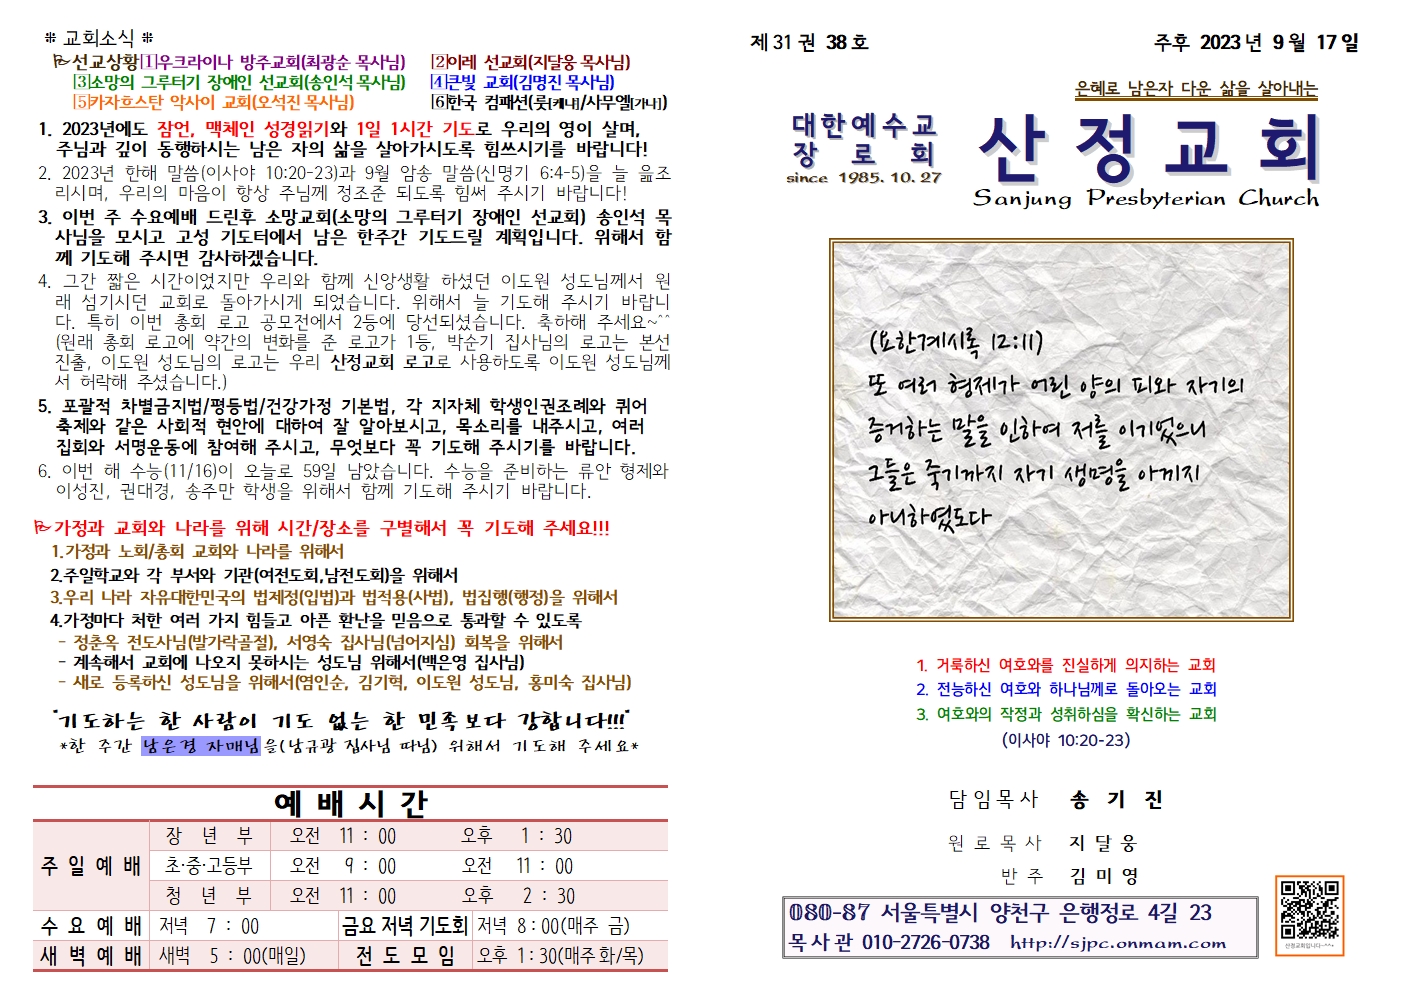 ❊ 교회소식 ❊
선교상황[1]우크라이나 방주교회(최광순 목사님) [2]이레 선교회(지달웅 목사님)
[3]소망의 그루터기 장애인 선교회(송인석 목사님) [4]큰빛 교회(김명진 목사님)
[5]카자흐스탄 악사이 교회(오석진 목사님) [6]한국 컴패션(룻[케냐]/사무엘[가나])
1. 2023년에도 잠언, 맥체인 성경읽기와 1일 1시간 기도로 우리의 영이 살며,
주님과 깊이 동행하시는 남은 자의 삶을 살아가시도록 힘쓰시기를 바랍니다!
2. 2023년 한해 말씀(이사야 10:20-23)과 9월 암송 말씀(신명기 6:4-5)을 늘 읊조
리시며, 우리의 마음이 항상 주님께 정조준 되도록 힘써 주시기 바랍니다!
3. 이번 주 수요예배 드린후 소망교회(소망의 그루터기 장애인 선교회) 송인석 목
사님을 모시고 고성 기도터에서 남은 한주간 기도드릴 계획입니다. 위해서 함
께 기도해 주시면 감사하겠습니다.
4. 그간 짧은 시간이었지만 우리와 함께 신앙생활 하셨던 이도원 성도님께서 원
래 섬기시던 교회로 돌아가시게 되었습니다. 위해서 늘 기도해 주시기 바랍니
다. 특히 이번 총회 로고 공모전에서 2등에 당선되셨습니다. 축하해 주세요~^^
(원래 총회 로고에 약간의 변화를 준 로고가 1등, 박순기 집사님의 로고는 본선
진출, 이도원 성도님의 로고는 우리 산정교회 로고로 사용하도록 이도원 성도님께
서 허락해 주셨습니다.)
5. 포괄적 차별금지법/평등법/건강가정 기본법, 각 지자체 학생인권조례와 퀴어
축제와 같은 사회적 현안에 대하여 잘 알아보시고, 목소리를 내주시고, 여러
집회와 서명운동에 참여해 주시고, 무엇보다 꼭 기도해 주시기를 바랍니다.
6. 이번 해 수능(11/16)이 오늘로 59일 남았습니다. 수능을 준비하는 류안 형제와
이성진, 권대경, 송주만 학생을 위해서 함께 기도해 주시기 바랍니다.
가정과 교회와 나라를 위해 시간/장소를 구별해서 꼭 기도해 주세요!!!
1.가정과 노회/총회 교회와 나라를 위해서
2.주일학교와 각 부서와 기관(여전도회,남전도회)을 위해서
3.우리 나라 자유대한민국의 법제정(입법)과 법적용(사법), 법집행(행정)을 위해서
4.가정마다 처한 여러 가지 힘들고 아픈 환난을 믿음으로 통과할 수 있도록
- 정춘옥 전도사님(발가락골절), 서영숙 집사님(넘어지심) 회복을 위해서
- 계속해서 교회에 나오지 못하시는 성도님 위해서(백은영 집사님)
- 새로 등록하신 성도님을 위해서(염인순, 김기혁, 이도원 성도님, 홍미숙 집사님)
"기도하는 한 사람이 기도 없는 한 민족보다 강합니다!!!"
*한 주간 남은경 자매님을(남규광 집사님 따님) 위해서 기도해 주세요*
예 배 시 간
주 일 예 배 장 년 부 오전 11 : 00 오후 1 : 30
초·중·고등부 오전 9 : 00 오전 11 : 00
청 년 부 오전 11 : 00 오후 2 : 30
수 요 예 배 저녁 7 : 00 금요 저녁 기도회 저녁 8:00(매주 금)
새 벽 예 배 새벽 5 : 00(매일) 전 도 모 임 오후 1:30(매주 화/목)
제 31 권 38 호 주후 2023 년 9 월 17 일
은혜로 남은자 다운 삶을 살아내는
대한예수교
장 로 회
since 1985. 10. 27
산정교회
Sanjung Presbyterian Church
(요한계시록 12:11)
또 여러 형제가 어린 양의 피와 자기의
증거하는 말을 인하여 저를 이기었으니
그들은 죽기까지 자기 생명을 아끼지
아니하였도다
1. 거룩하신 여호와를 진실하게 의지하는 교회
2. 전능하신 여호와 하나님께로 돌아오는 교회
3. 여호와의 작정과 성취하심을 확신하는 교회
(이사야 10:20-23)
담임목사 송 기 진
원 로 목 사 지 달 웅
반 주 김 미 영
080-87 서울특별시 양천구 은행정로 4길 23
목사관 010-2726-0738 http://sjpc.onmam.com
산정교회입니다~^^*